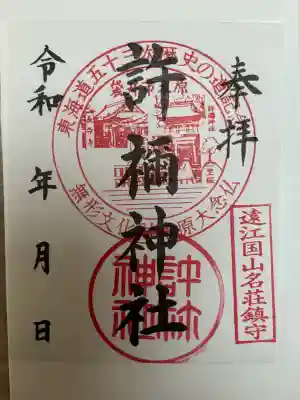 奉拝
許禰神社
令和 年 月 日
遠江国山名荘鎮守
東海道五十三次
歴史の
無形文化
原大念仏
許祢神社